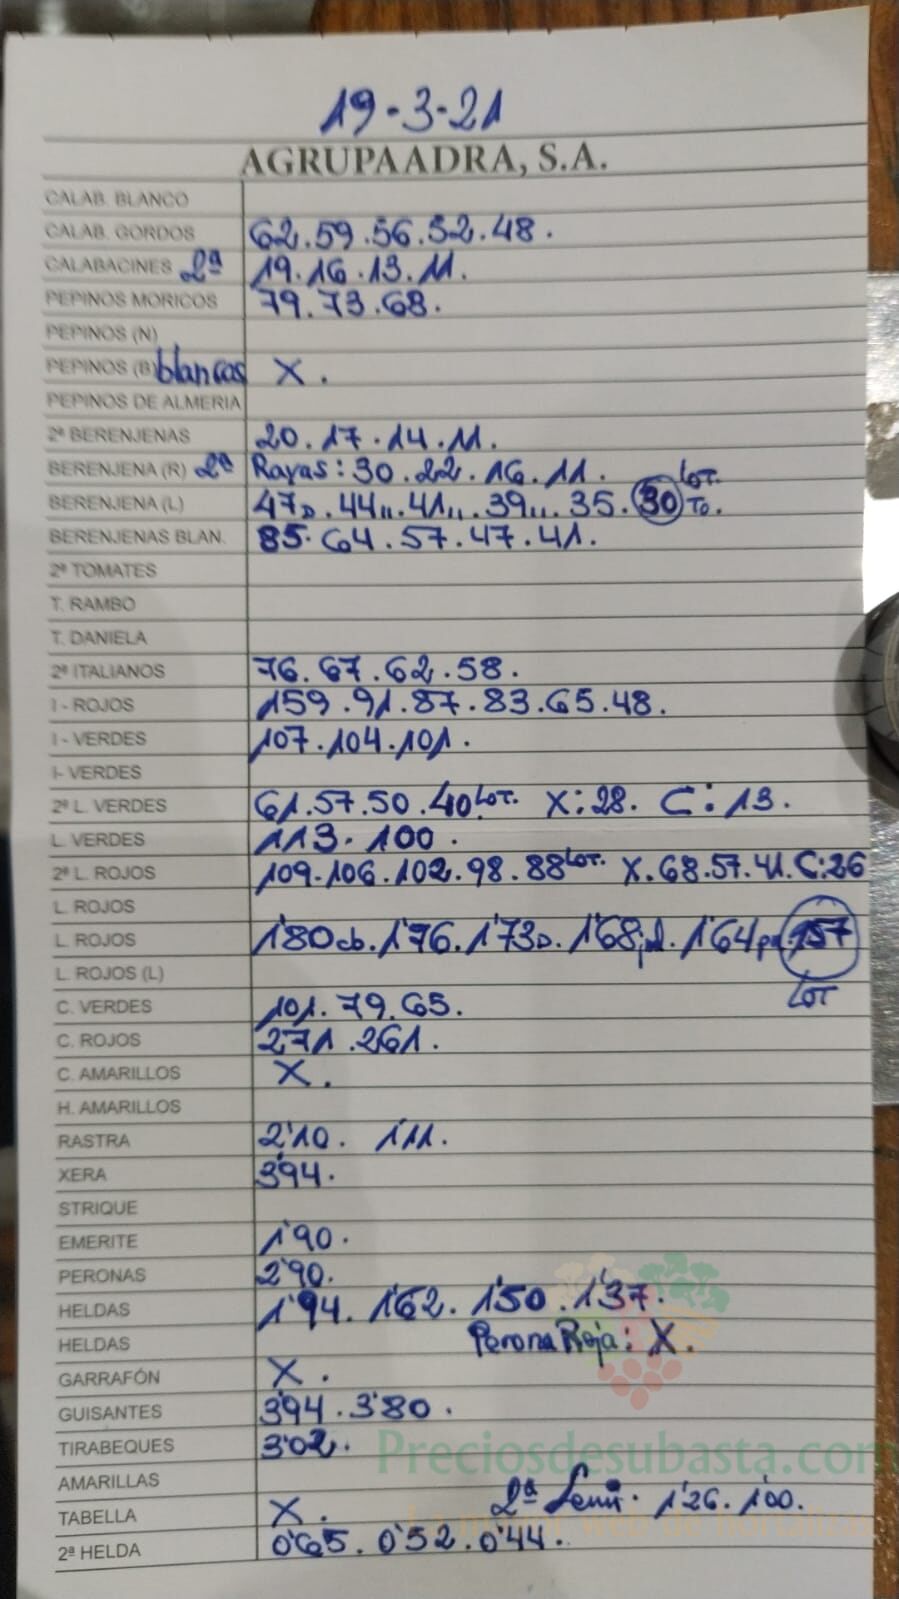 19-3-21
AGRUPAADRA, S.A.
CALAB. BLANCO
CALAB. GORDOS 62.59.56.52.48.
CALABACINES 2ª 19.16.13.11.
PEPINOS MORICOS 79.73.68.
PEPINOS (N)
PEPINOS (B) blancos X.
PEPINOS DE ALMERIA
2ª BERENJENAS 20.17.14.11.
BERENJENA (R) 2ª Rayas: 30.22.16.11.
BERENJENA (L) 47D.44,,.41,,.39,,.35.30 LOT. To.
BERENJENAS BLAN. 85.64.57.47.41.
2ª TOMATES
T. RAMBO
T. DANIELA
2ª ITALIANOS 76.67.62.58.
I - ROJOS 159.91.87.83.65.48.
I - VERDES 107.104.101.
I- VERDES
2ª L. VERDES 61.57.50.40 LOT. X:28. C:13.
L. VERDES 113.100.
2ª L. ROJOS 109.106.102.98.88 LOT. X.68.57.41.C:26
L. ROJOS
L. ROJOS 1'80cb.1'76.1'73D.1'68 .1'64 .157
LOT
L. ROJOS (L)
C. VERDES 101.79.65.
C. ROJOS 271.261.
C. AMARILLOS X.
H. AMARILLOS
RASTRA 2'10. 1'11.
XERA 3'94.
STRIQUE
EMERITE 1'90.
PERONAS 2'90.
HELDAS 1'94.1'62.1'50.1'37.
HELDAS Perona Roja: X.
GARRAFÓN X.
GUISANTES 3'94.3'80.
TIRABEQUES 3'02.
Preciosdesubasta.com
AMARILLAS
TABELLA X. 2ª Semi. 1'26.1'00.
La mejor web de hortalizas
2ª HELDA 0'65.0'52.0'44.